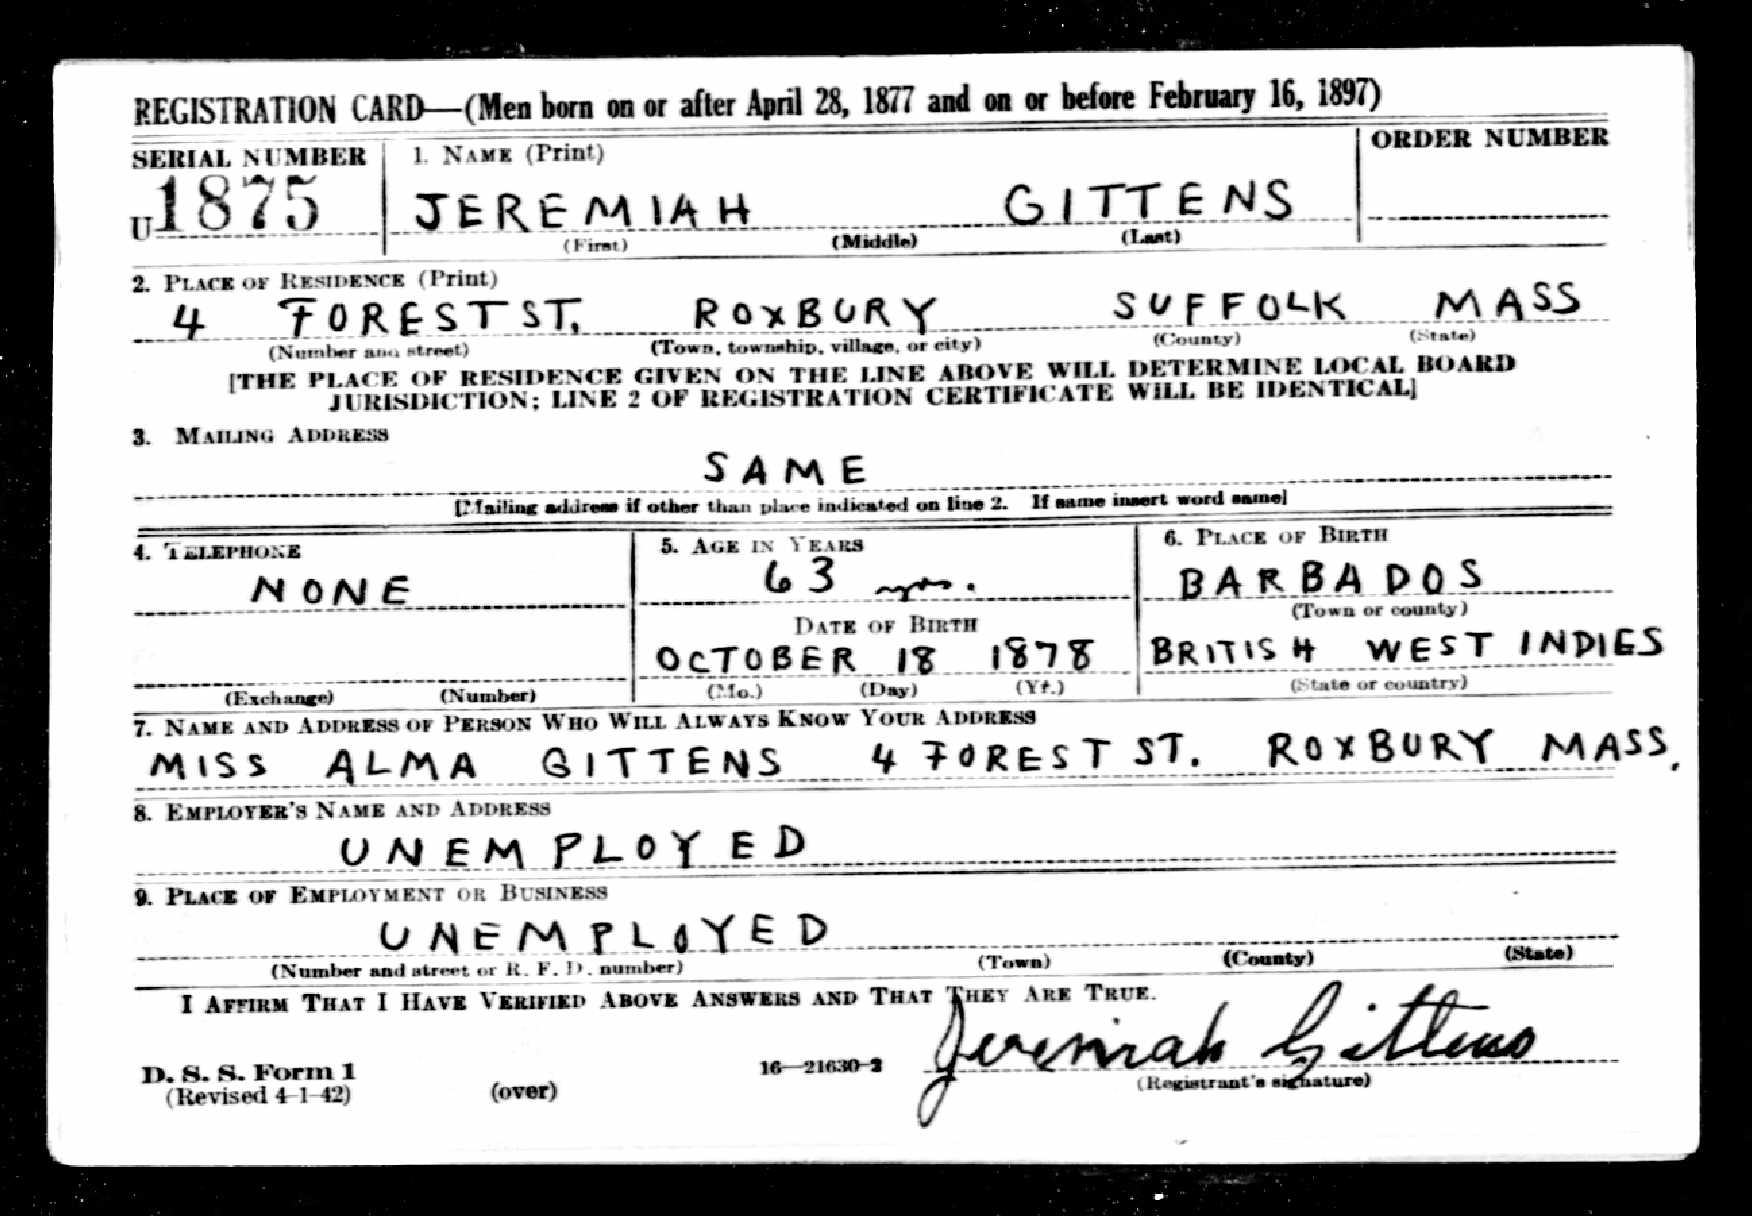 REGISTRATION CARD—(Men born on or after April 28, 1877 and on or before February 16, 1897)
SERIAL NUMBER
U1875
1. NAME (Print)
JEREMIAH GITTENS
(First) (Middle) (Last)
ORDER NUMBER
2. PLACE OF RESIDENCE (Print)
4 FOREST ST. ROXBURY SUFFOLK MASS
(Number and street) (Town, township, village, or city) (County) (State)
[THE PLACE OF RESIDENCE GIVEN ON THE LINE ABOVE WILL DETERMINE LOCAL BOARD
JURISDICTION; LINE 2 OF REGISTRATION CERTIFICATE WILL BE IDENTICAL]
3. MAILING ADDRESS
SAME
[Mailing address if other than place indicated on line 2. If same insert word same]
4. TELEPHONE
NONE
(Exchange) (Number)
5. AGE IN YEARS
63 yrs.
DATE OF BIRTH
OCTOBER 18 1878
(Mo.) (Day) (Yr.)
6. PLACE OF BIRTH
BARBADOS
(Town or county)
BRITISH WEST INDIES
(State or country)
7. NAME AND ADDRESS OF PERSON WHO WILL ALWAYS KNOW YOUR ADDRESS
MISS ALMA GITTENS 4 FOREST ST. ROXBURY MASS.
8. EMPLOYER'S NAME AND ADDRESS
UNEMPLOYED
9. PLACE OF EMPLOYMENT OR BUSINESS
UNEMPLOYED
(Number and street or R. F. D. number) (Town) (County) (State)
I AFFIRM THAT I HAVE VERIFIED ABOVE ANSWERS AND THAT THEY ARE TRUE.
Jeremiah Gittens
(Registrant's signature)
D. S. S. Form 1
(Revised 4-1-42)
(over)
16—21630-2